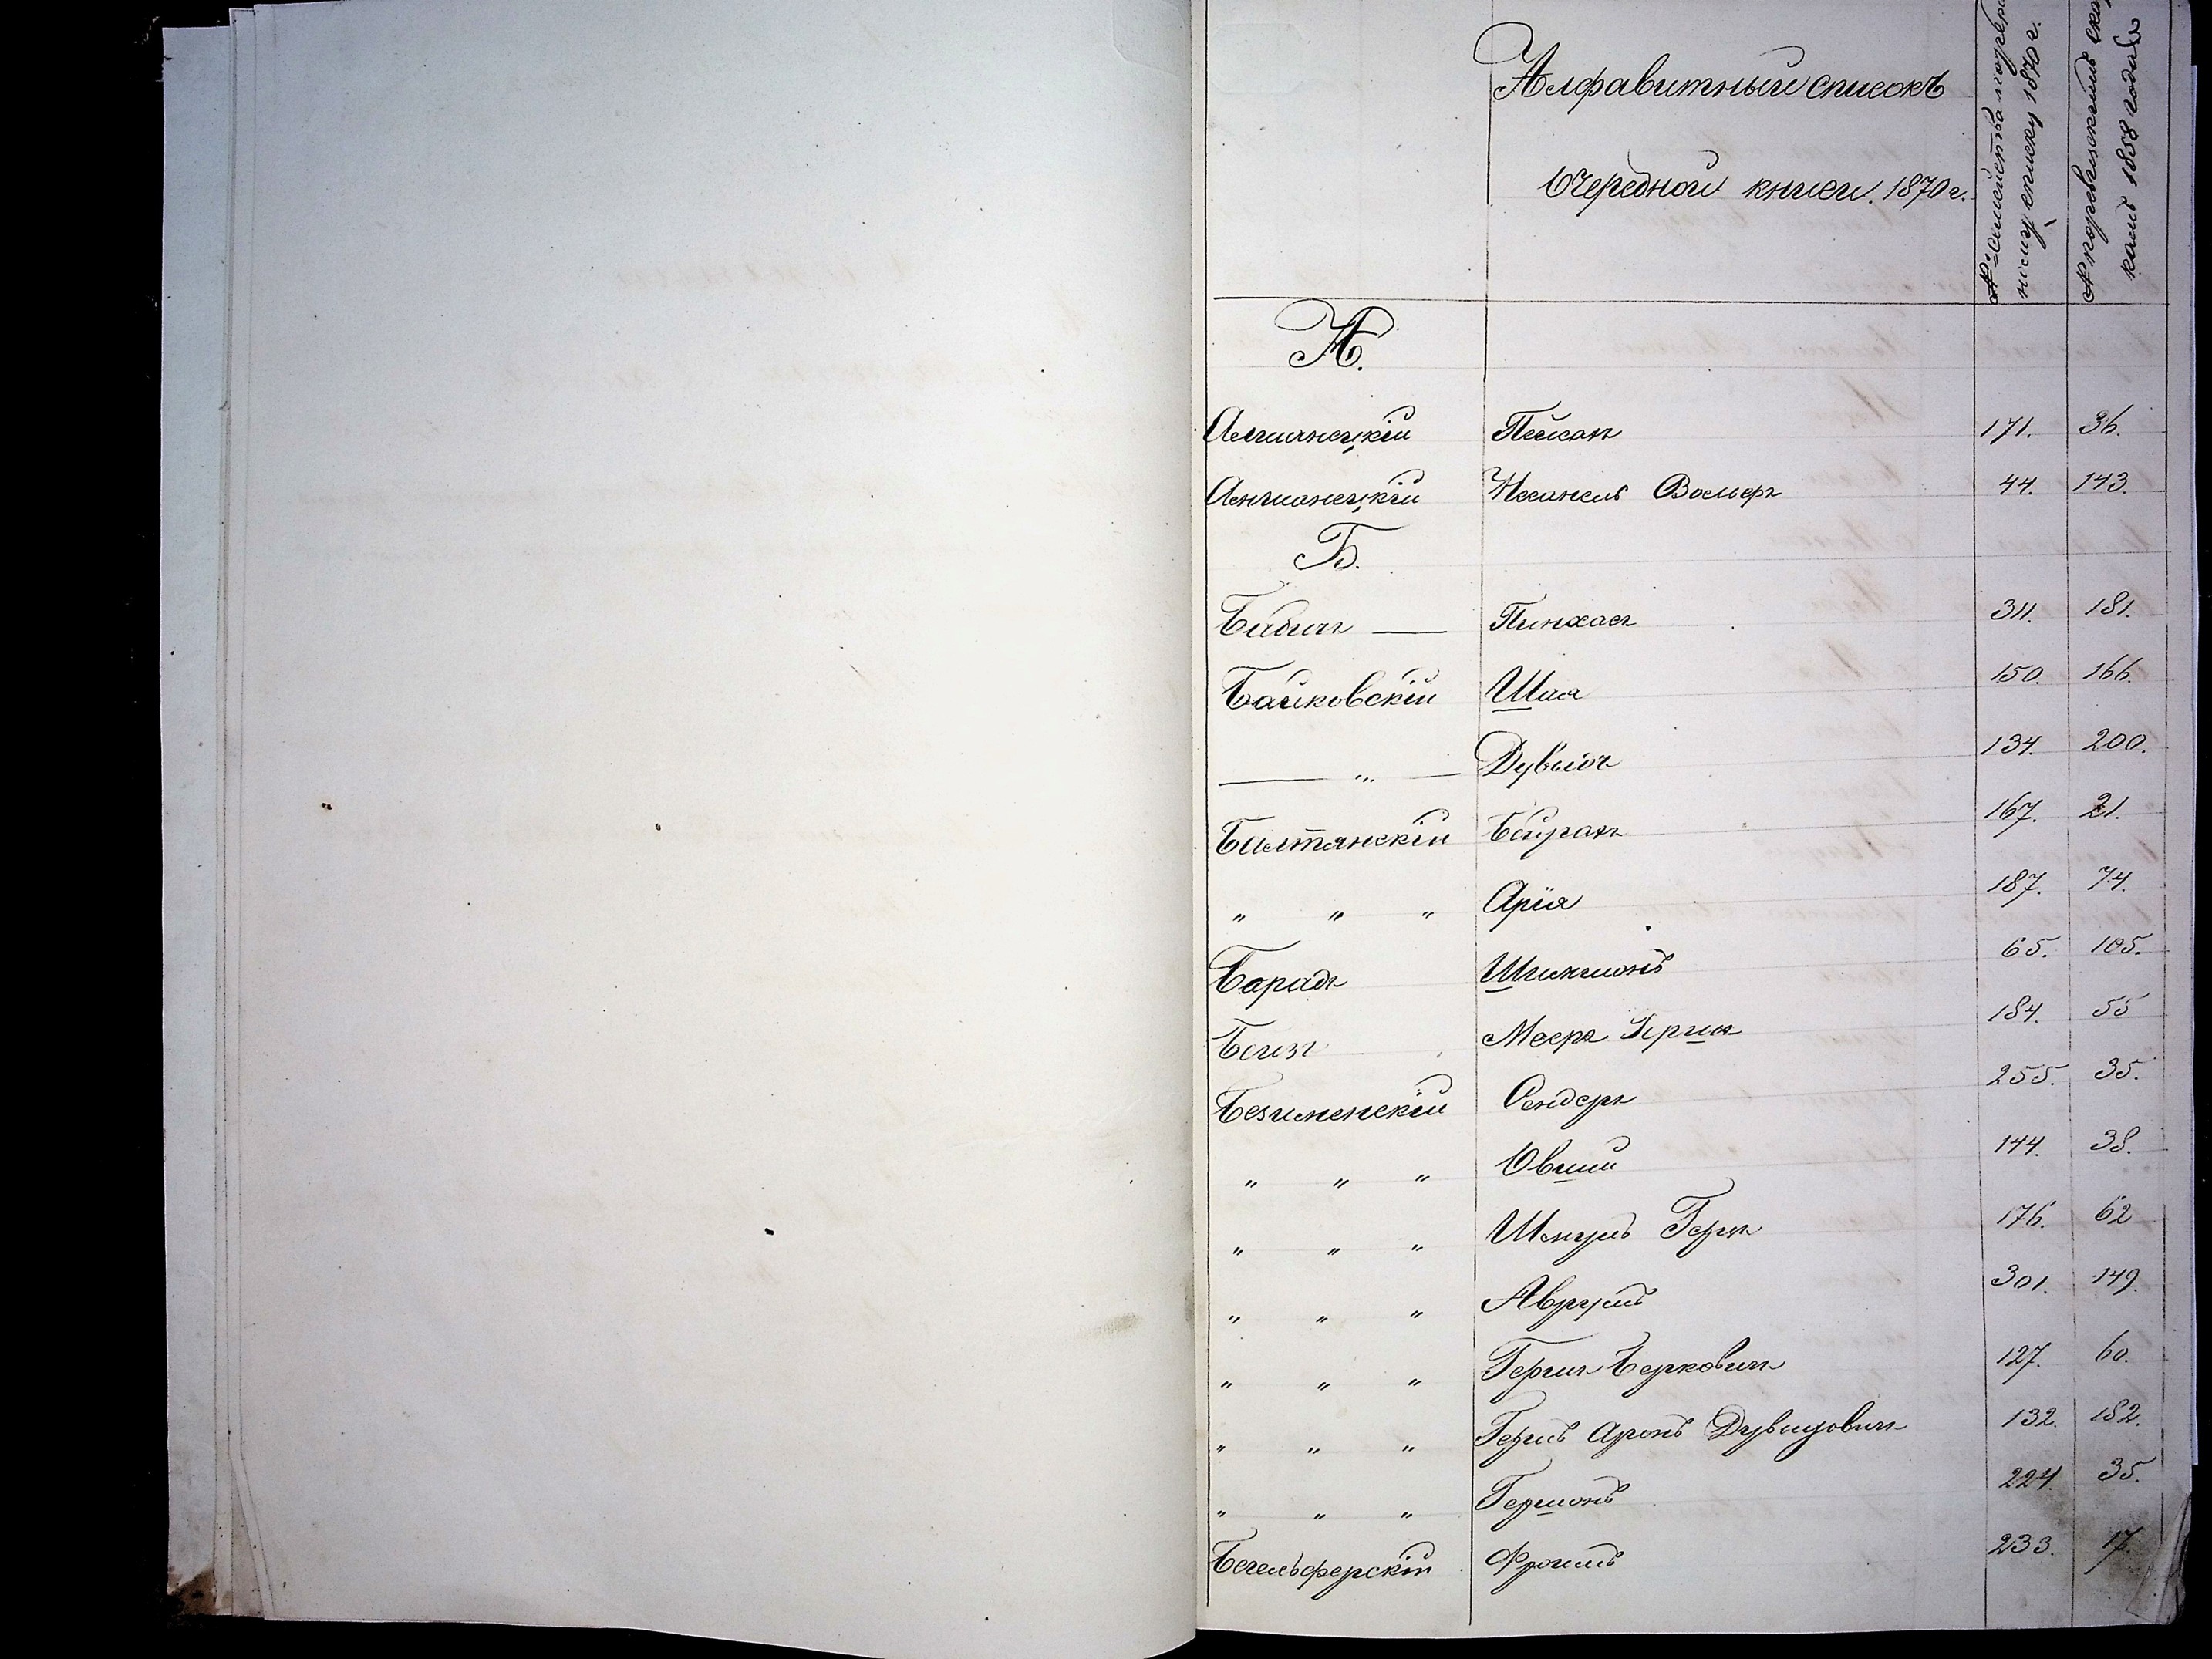 Алфавитный списокъ
Очередной книги. 1870 г.
№ семейства по
ному списку 1870 г.
№ по ревизскимъ ска
камъ 1858 года
А.
Пейсахъ 171. 36.
Вольфъ 44. 143.
Б.
Бабичъ — Пинхасъ 311. 181.
Байковскій Шая 150. 166.
— „ — Дувидъ 134. 200.
Балтянскій 167. 21.
„ „ „ Арія 187. 74.
Барадъ Шимшонъ 65. 105.
Мееръ Гершъ 184. 55
Безименскій Сендеръ 255. 35.
„ „ „ Овшій 144. 38.
„ „ „ Шмуль Гершъ 176. 62
„ „ „ Аврумъ 301. 149.
„ „ „ Гершъ Берковичъ 127. 60.
„ „ „ Аронъ Дувидовичъ 132. 182.
„ „ „ Гершонъ 224. 35.
Бегельферскій Фроимъ 233. 17.